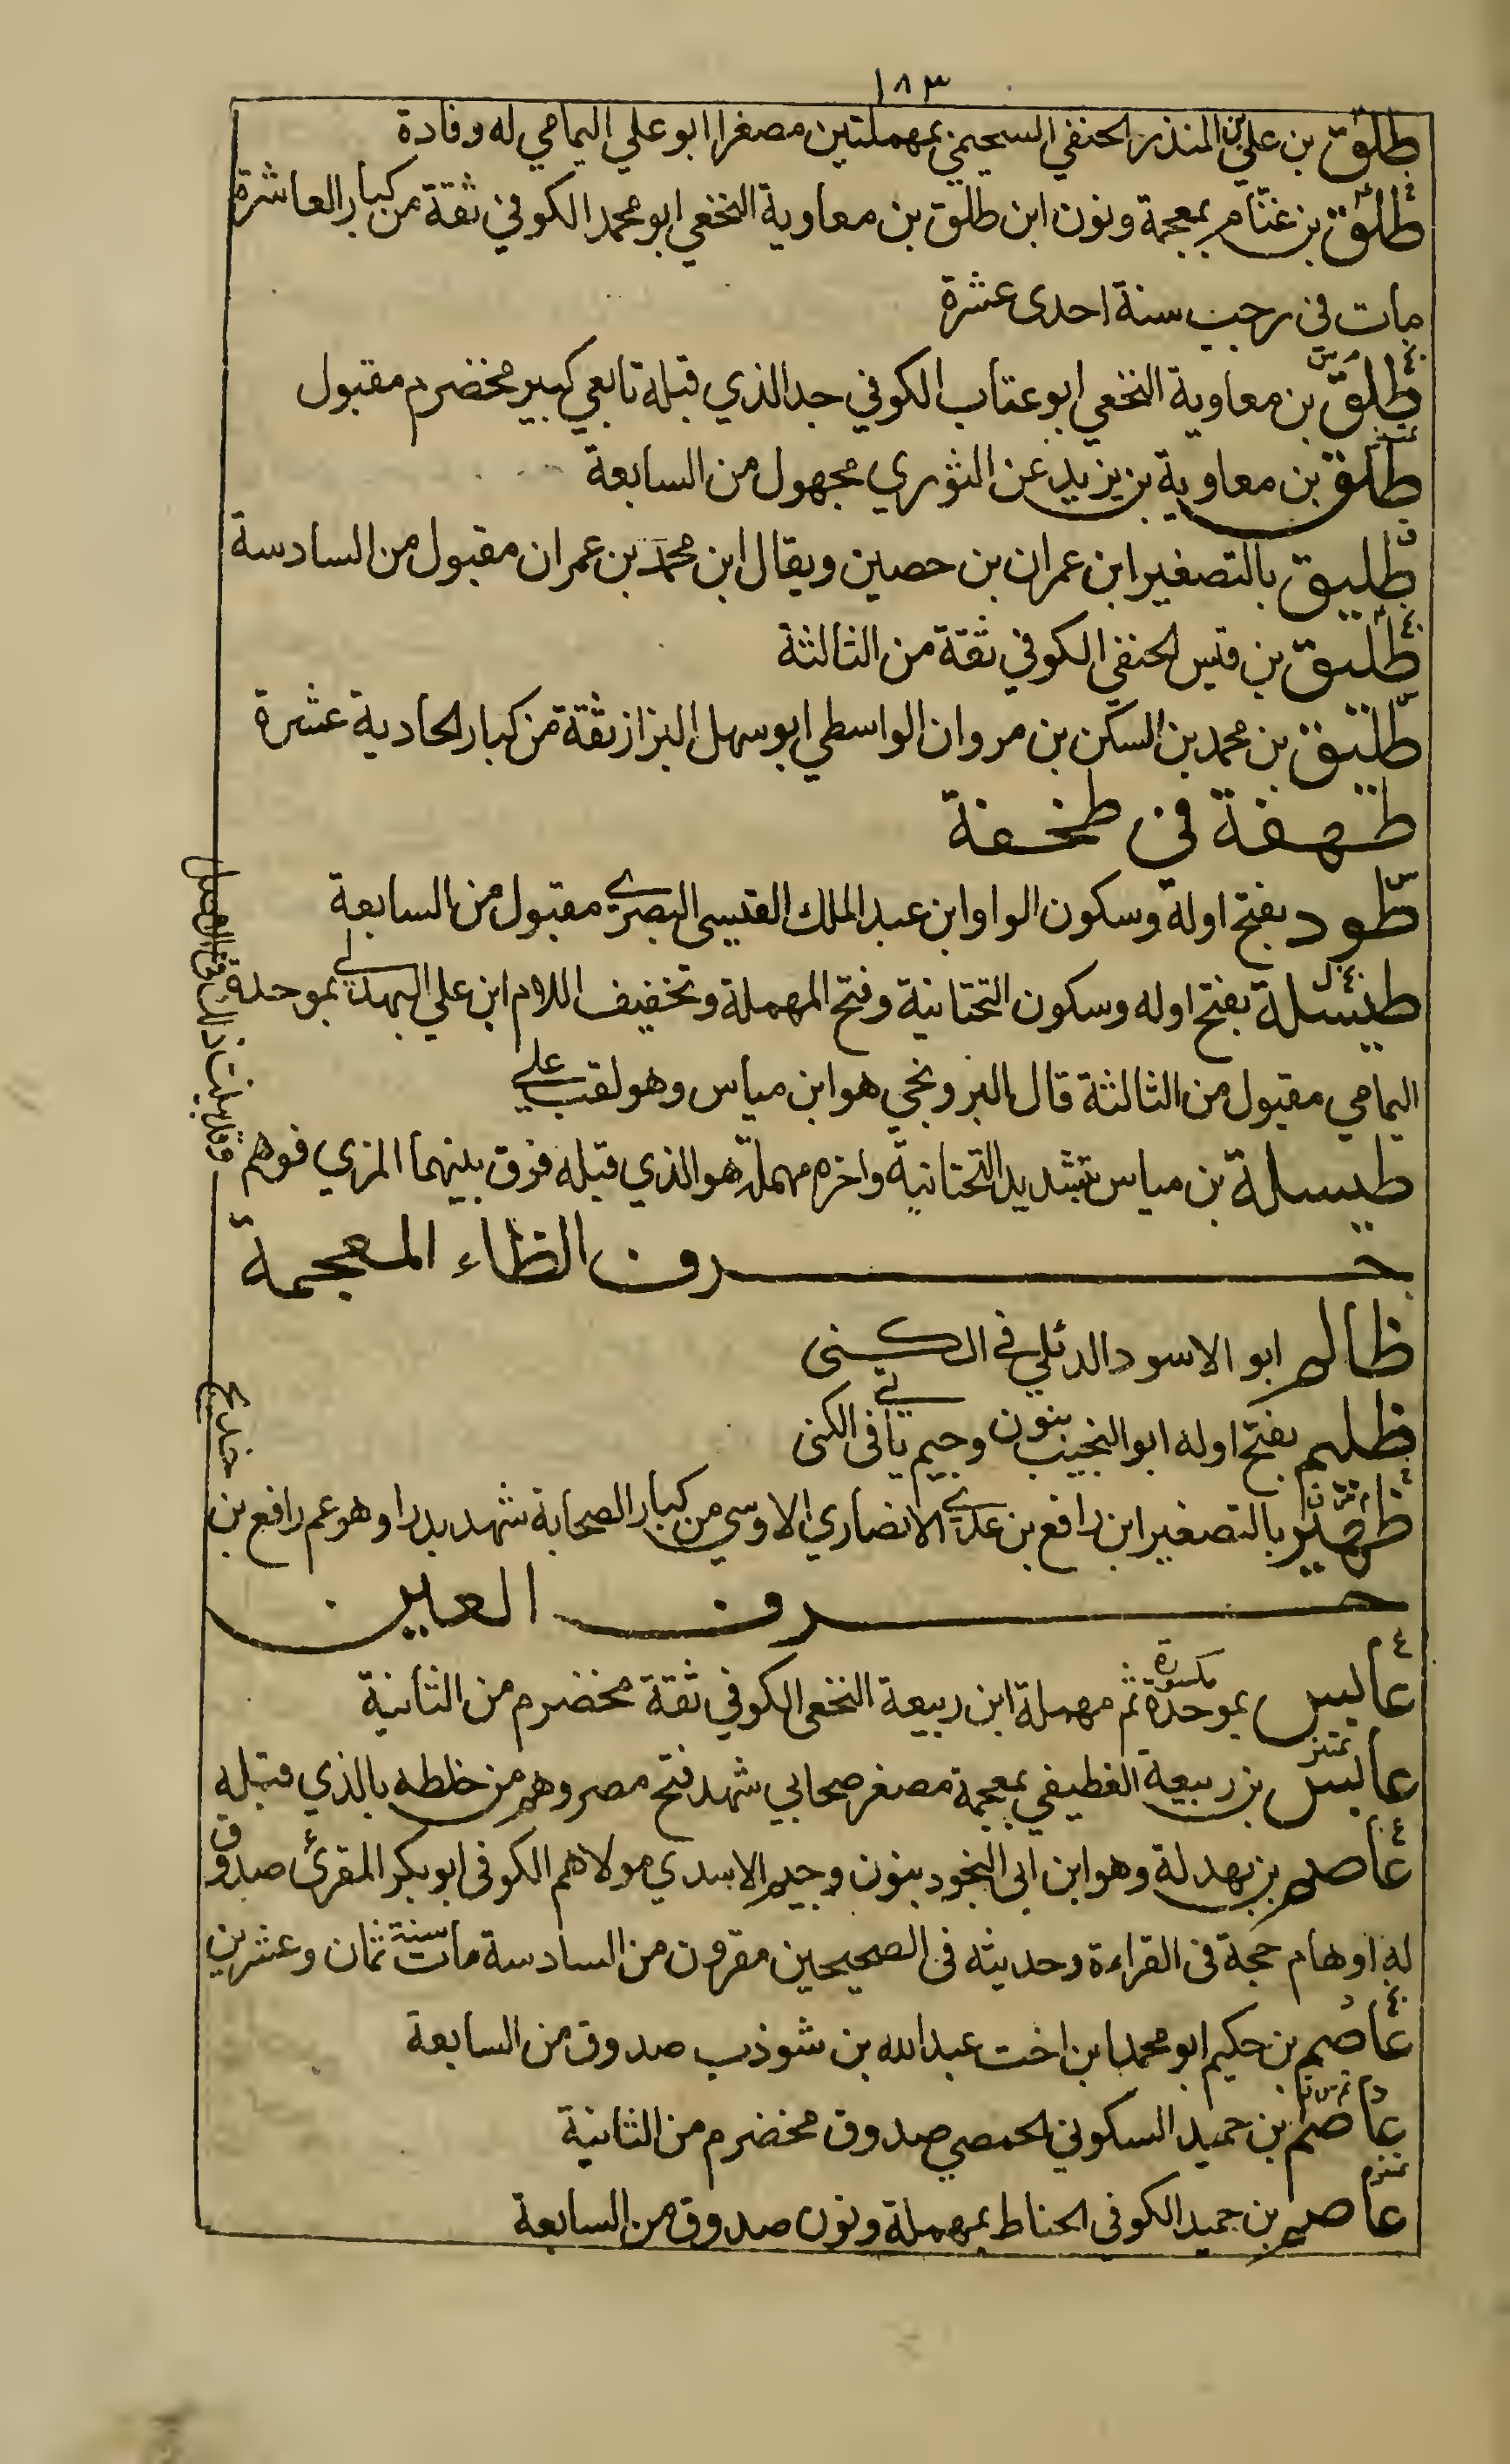 ١٨٣
طلق بن علي بن المنذر الحنفي السحيمي بمهملتين مصغرا ابو علي اليمامي له وفادة
طلق بن غنام بمعجمة ونون ابن طلق بن معاوية النخعي ابو محمد الكوفي ثقة من كبار العاشرة
مات في رجب سنة احدى عشرة
طلق بن معاوية النخعي ابو عتاب الكوفي جد الذي قبله تابعي كبير مخضرم مقبول
طلق بن معاوية بن يزيد عن الثوري مجهول من السابعة
طليق بالتصغير ابن عمران بن حصين ويقال ابن محمد بن عمران مقبول من السادسة
طليق بن قيس الحنفي الكوفي ثقة من الثالثة
طليق بن محمد بن السكن بن مروان الواسطي ابو سهل البزاز ثقة من كبار الحادية عشرة
طهفة في طخفة
طود بفتح اوله وسكون الواو ابن عبد الملك القيسي البصري مقبول من السابعة
طيسلة بفتح اوله وسكون التحتانية وفتح المهملة وتخفيف اللام ابن علي البهدلي بموحدة
اليمامي مقبول من الثالثة قال البرونجي هو ابن مياس وهو لقب علي
طيسلة بن مياس بتشديد التحتانية واخره مهملة هو الذي قبله فرق بينهما المزي فوهم
وقد بينت ذلك في الاصل
حرف الظاء المعجمة
ظالم ابو الاسود الدئلي في الكنى
ظليم بفتح اوله ابو النجيب بنون وجيم ياتي في الكنى
ظهير بالتصغير ابن رافع بن عدي الانصاري الاوسي من كبار الصحابة شهد بدرا وهو عم رافع بن
خديج
حرف العين
عابس بموحدة مكسورة ثم مهملة ابن ربيعة النخعي الكوفي ثقة مخضرم من الثانية
عابس بن ربيعة الغطيفي بمعجمة مصغر صحابي شهد فتح مصر وهم من خلطه بالذي قبله
عاصم بن بهدلة وهو ابن ابي النجود بنون وجيم الاسدي مولاهم الكوفي ابو بكر المقرئ صدوق
له اوهام حجة في القراءة وحديثه في الصحيحين مقرون من السادسة مات سنة ثمان وعشرين
عاصم بن حكيم ابو محمد ابن اخت عبد الله بن شوذب صدوق من السابعة
عاصم بن حميد السكوني الحمصي صدوق مخضرم من الثانية
عاصم بن حميد الكوفي الحناط بمهملة ونون صدوق من السابعة